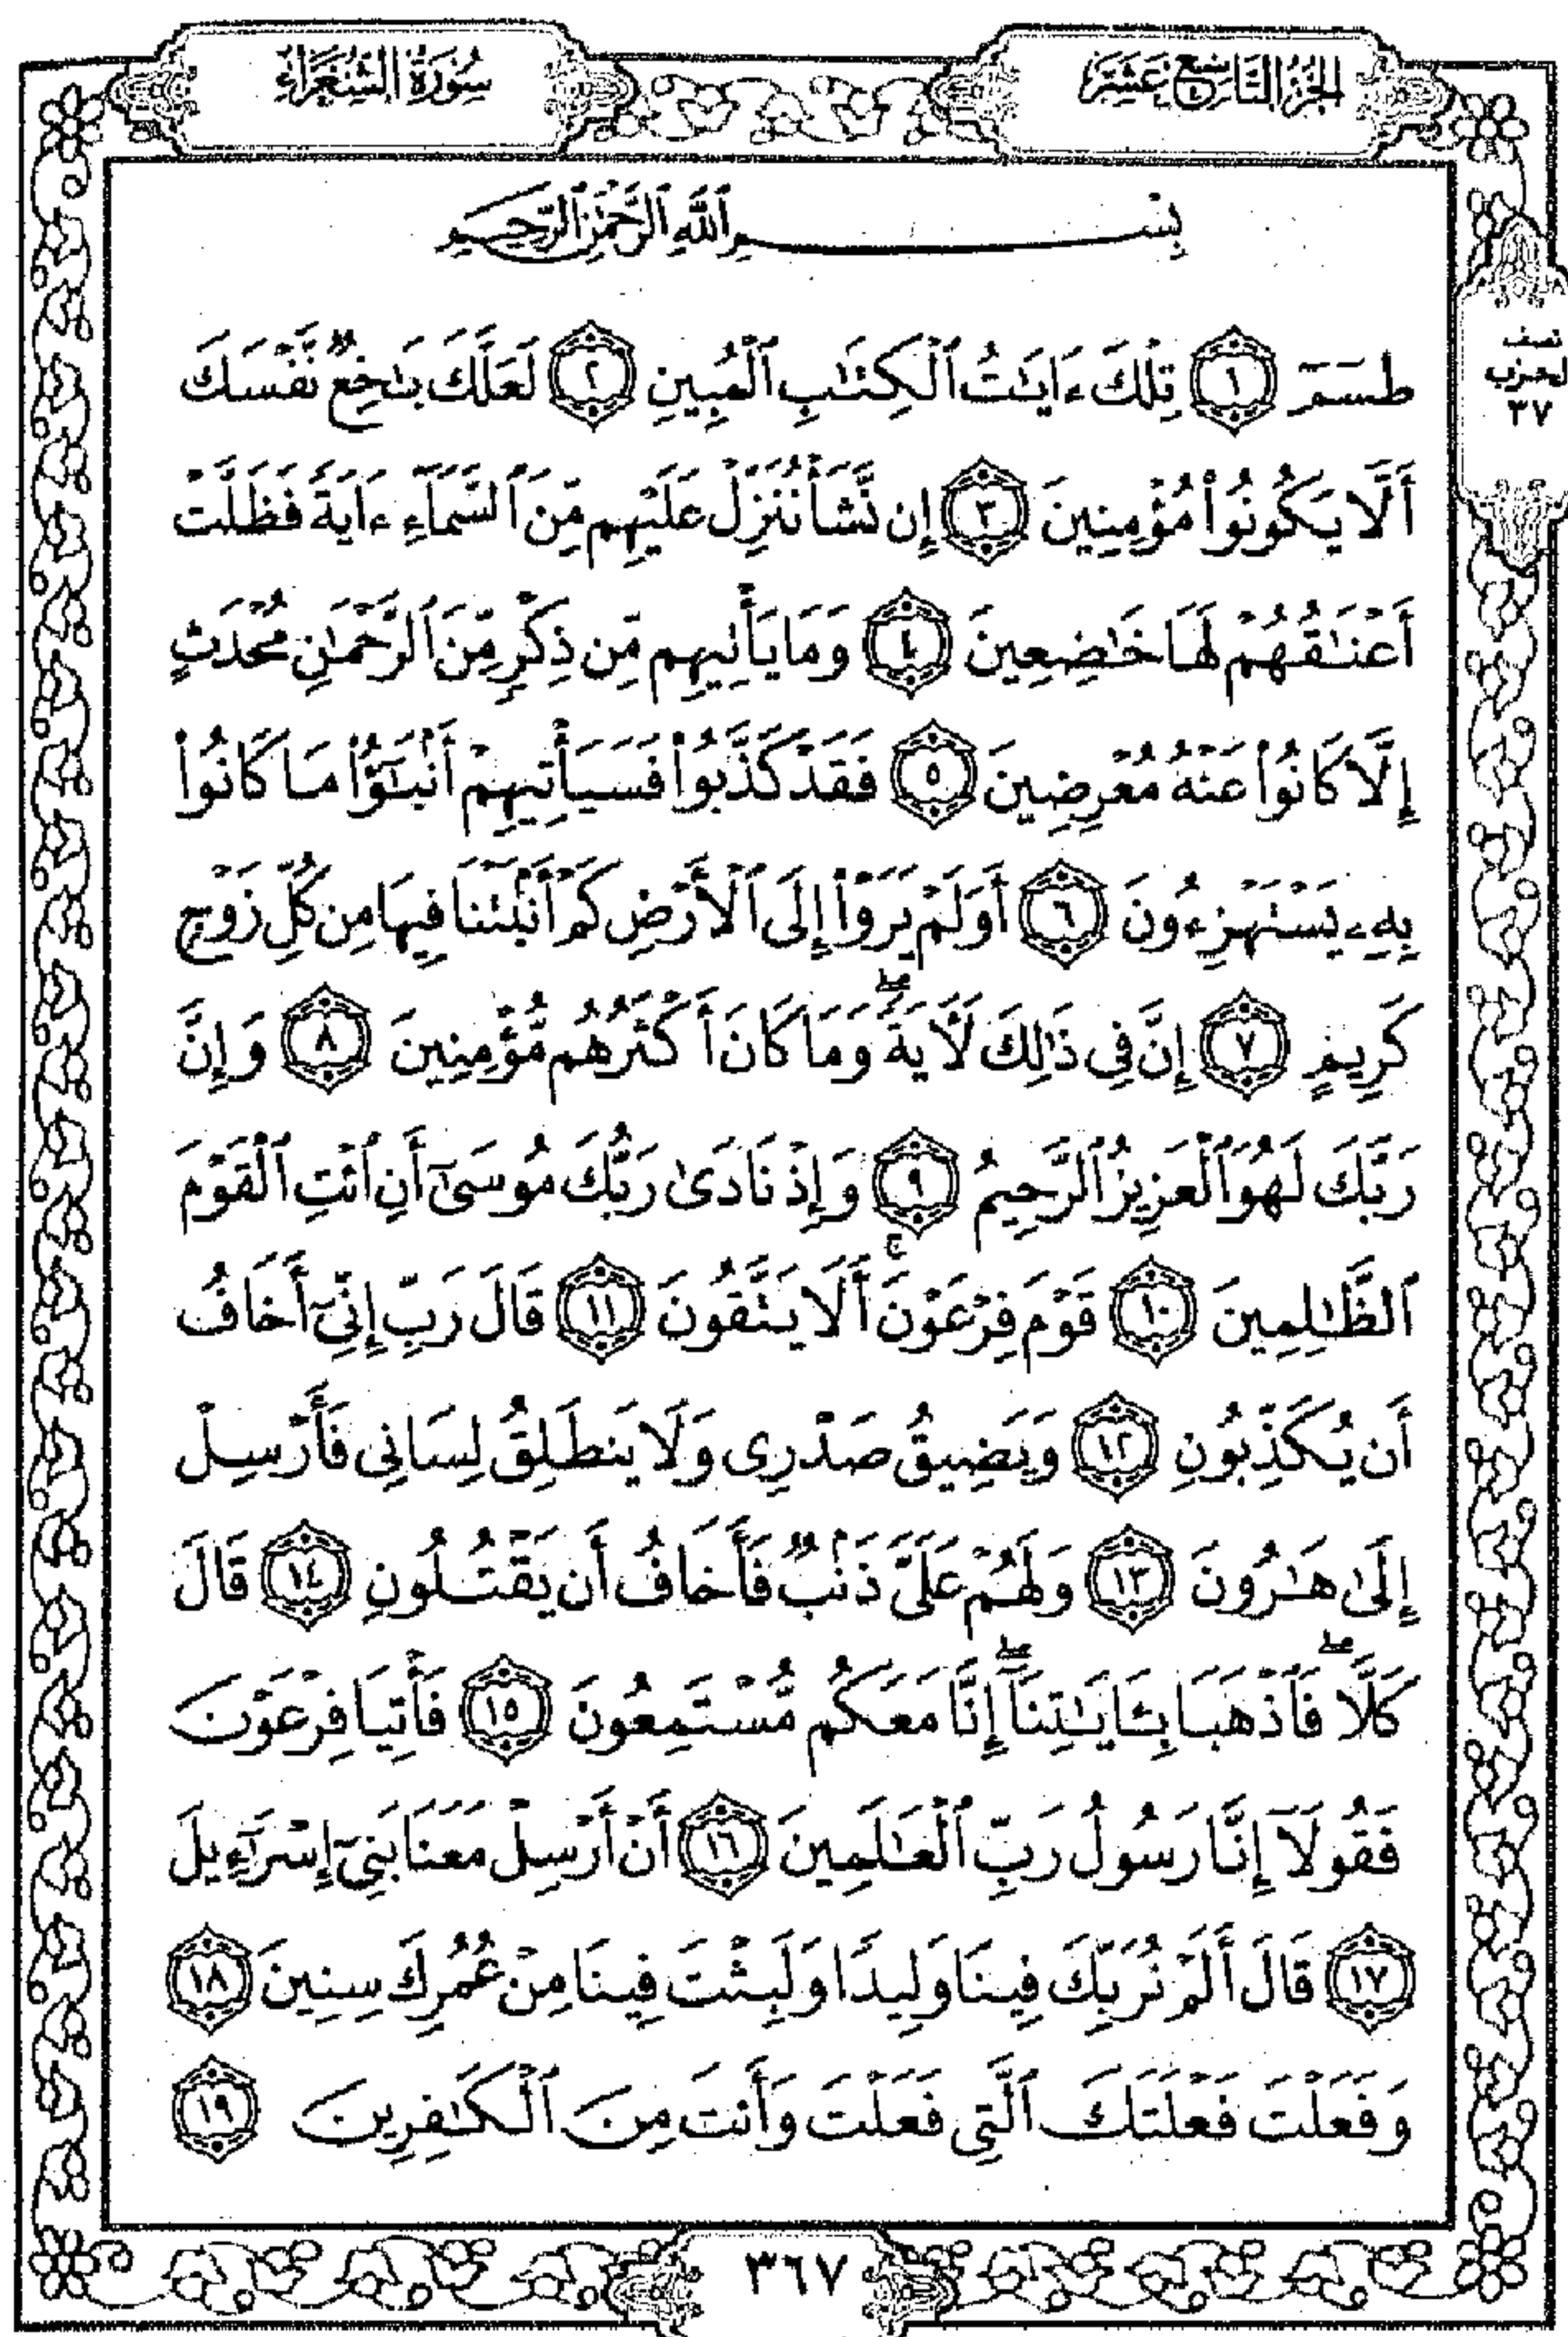 الجزء التاسع عشر
سُورَةُ الشُّعَرَاءِ
نصف
الحزب
٣٧
بِسْمِ ٱللَّهِ ٱلرَّحْمَٰنِ ٱلرَّحِيمِ
طسٓمٓ ١ تِلْكَ ءَايَٰتُ ٱلْكِتَٰبِ ٱلْمُبِينِ ٢ لَعَلَّكَ بَٰخِعٌ نَّفْسَكَ
أَلَّا يَكُونُوا۟ مُؤْمِنِينَ ٣ إِن نَّشَأْ نُنَزِّلْ عَلَيْهِم مِّنَ ٱلسَّمَآءِ ءَايَةً فَظَلَّتْ
أَعْنَٰقُهُمْ لَهَا خَٰضِعِينَ ٤ وَمَا يَأْتِيهِم مِّن ذِكْرٍ مِّنَ ٱلرَّحْمَٰنِ مُحْدَثٍ
إِلَّا كَانُوا۟ عَنْهُ مُعْرِضِينَ ٥ فَقَدْ كَذَّبُوا۟ فَسَيَأْتِيهِمْ أَنۢبَٰٓؤُا۟ مَا كَانُوا۟
بِهِۦ يَسْتَهْزِءُونَ ٦ أَوَلَمْ يَرَوْا۟ إِلَى ٱلْأَرْضِ كَمْ أَنۢبَتْنَا فِيهَا مِن كُلِّ زَوْجٍ
كَرِيمٍ ٧ إِنَّ فِى ذَٰلِكَ لَءَايَةً ۖ وَمَا كَانَ أَكْثَرُهُم مُّؤْمِنِينَ ٨ وَإِنَّ
رَبَّكَ لَهُوَ ٱلْعَزِيزُ ٱلرَّحِيمُ ٩ وَإِذْ نَادَىٰ رَبُّكَ مُوسَىٰٓ أَنِ ٱئْتِ ٱلْقَوْمَ
ٱلظَّٰلِمِينَ ١٠ قَوْمَ فِرْعَوْنَ ۚ أَلَا يَتَّقُونَ ١١ قَالَ رَبِّ إِنِّىٓ أَخَافُ
أَن يُكَذِّبُونِ ١٢ وَيَضِيقُ صَدْرِى وَلَا يَنطَلِقُ لِسَانِى فَأَرْسِلْ
إِلَىٰ هَٰرُونَ ١٣ وَلَهُمْ عَلَىَّ ذَنۢبٌ فَأَخَافُ أَن يَقْتُلُونِ ١٤ قَالَ
كَلَّا ۖ فَٱذْهَبَا بِـَٔايَٰتِنَآ ۖ إِنَّا مَعَكُم مُّسْتَمِعُونَ ١٥ فَأْتِيَا فِرْعَوْنَ
فَقُولَآ إِنَّا رَسُولُ رَبِّ ٱلْعَٰلَمِينَ ١٦ أَنْ أَرْسِلْ مَعَنَا بَنِىٓ إِسْرَٰٓءِيلَ
١٧ قَالَ أَلَمْ نُرَبِّكَ فِينَا وَلِيدًا وَلَبِثْتَ فِينَا مِنْ عُمُرِكَ سِنِينَ ١٨
وَفَعَلْتَ فَعْلَتَكَ ٱلَّتِى فَعَلْتَ وَأَنتَ مِنَ ٱلْكَٰفِرِينَ ١٩
٣٦٧